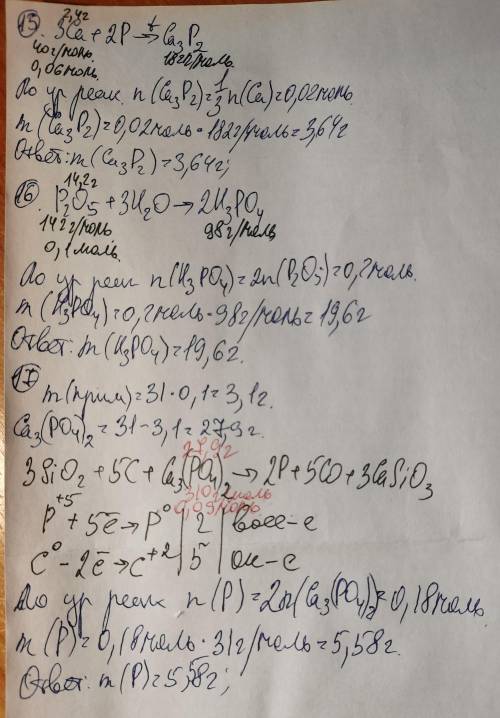 2,4г
15) 3Ca + 2P →t Ca₃P₂
40г/моль 182г/моль
0,06моль
По ур реак. n(Ca₃P₂)=1/3n(Ca)=0,02моль
m(Ca₃P₂)=0,02моль·182г/моль=3,64г
Ответ: m(Ca₃P₂)=3,64г;
14,2г
16) P₂O₅ + 3H₂O → 2H₃PO₄
142г/моль 98г/моль
0,1моль.
По ур реак n(H₃PO₄)=2n(P₂O₅)=0,2моль.
m(H₃PO₄)=0,2моль·98г/моль=19,6г
Ответ: m(H₃PO₄)=19,6г.
17) m(прим)=31·0,1=3,1г.
Ca₃(PO₄)₂=31-3,1=27,9г.
27,9г
3SiO₂ + 5C + Ca₃(PO₄)₂ → 2P + 5CO + 3CaSiO₃
310г/моль
0,09моль
P⁺⁵ + 5e̅ → P⁰ | 2 | восс-е
C⁰ - 2e̅ → C⁺² | 5 | ок-е
По ур реак n(P)=2n(Ca₃(PO₄)₂)=0,18моль
m(P)=0,18моль·31г/моль=5,58г.
Ответ: m(P)=5,58г;